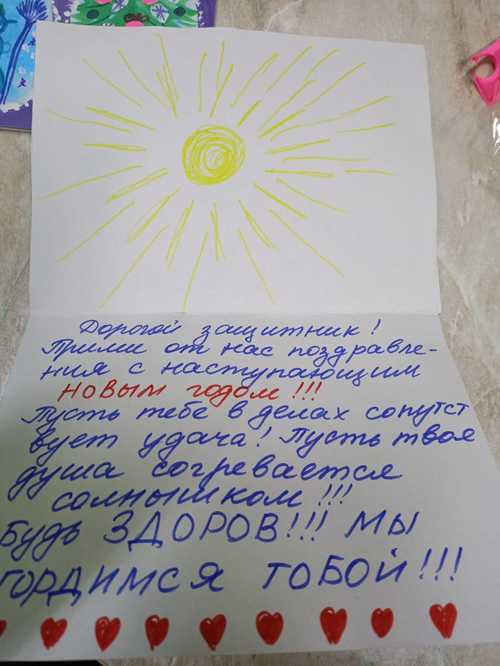 Дорогой защитник!
Прими от нас поздравле-
ния с наступающим
НОВЫМ годом!!!
Пусть тебе в делах сопутст
вует удача! Пусть твоя
душа согревается
солнышком!!!
Будь ЗДОРОВ!!! МЫ
гордимся ТОБОЙ!!!